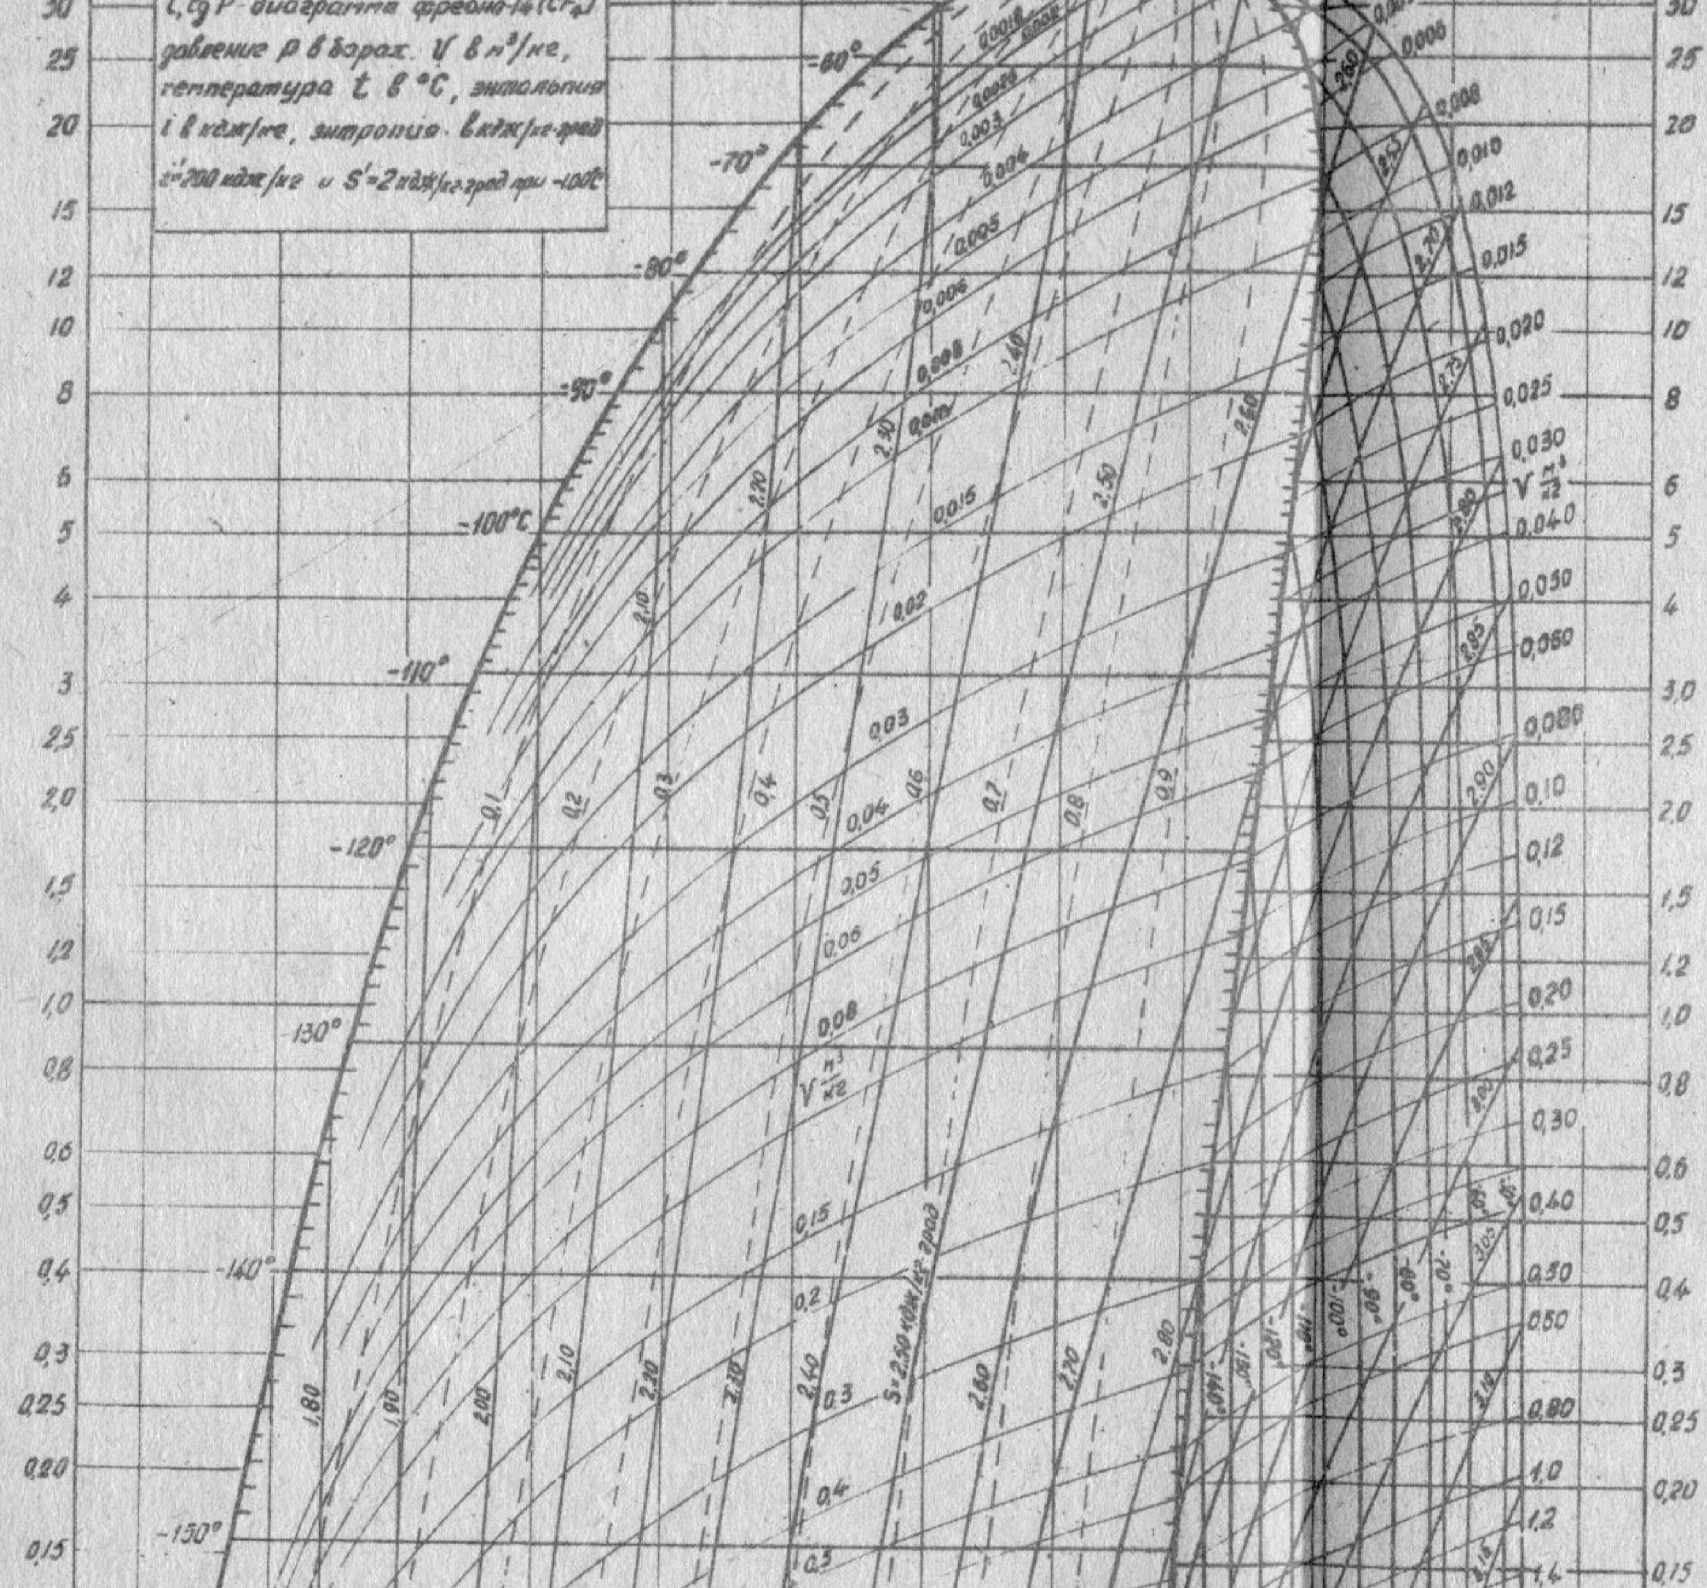 i, lg P - диаграмма фреона-14 (CF₄)
давление P в барах. V в м³/кг,
температура t в °C, энтальпия
i в кдж/кг, энтропия в кдж/кг·град
i'=200 кдж/кг и S'=2 кдж/кг·град при -100°C
30
25
20
15
12
10
8
6
5
4
3
2,5
2,0
1,5
1,2
1,0
0,8
0,6
0,5
0,4
0,3
0,25
0,20
0,15
-60°
-70°
-80°
-90°
-100°C
-110°
-120°
-130°
-140°
-150°
0,003
0,004
0,005
0,006
0,008
0,015
0,02
0,03
0,04
0,05
0,06
0,08
V м³/кг
0,15
0,2
0,3
0,4
0,5
2,10
2,20
2,30
2,40
2,50
2,60
0,1
0,2
0,3
0,4
0,5
0,6
0,7
0,8
0,9
1,80
1,90
2,00
2,10
2,20
2,30
2,40
S=2,50 кдж/кг·град
2,60
2,70
2,80
2,60
2,65
2,70
2,75
2,80
2,85
2,90
2,95
3,00
3,05
3,10
-140°
-130°
-120°
-110°
-100°
-90°
0,006
0,008
0,010
0,012
0,015
0,020
0,025
0,030
V м³/кг
0,040
0,050
0,060
0,080
0,10
0,12
0,15
0,20
0,25
0,30
0,40
0,50
0,60
0,80
1,0
1,2
1,4
30
25
20
15
12
10
8
6
5
4
3,0
2,5
2,0
1,5
1,2
1,0
0,8
0,6
0,5
0,4
0,3
0,25
0,20
0,15